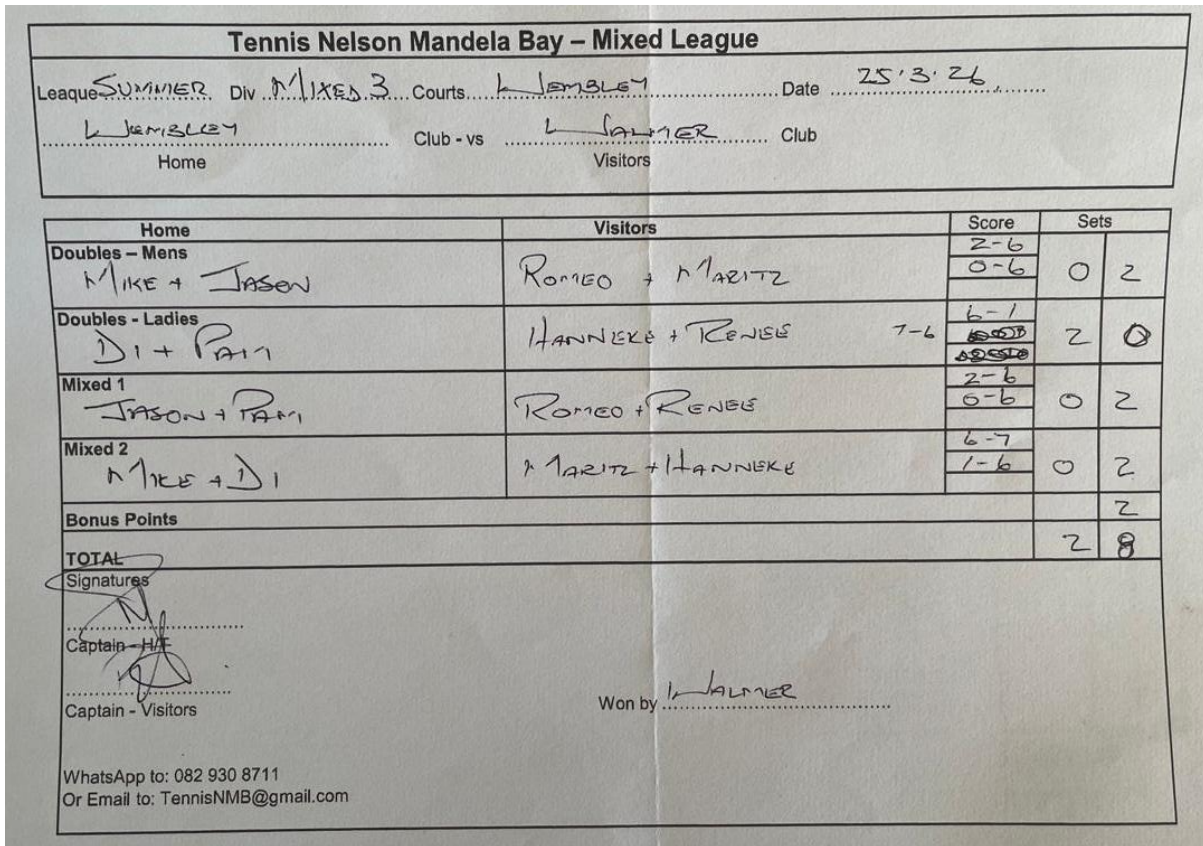 Tennis Nelson Mandela Bay – Mixed League
Leaque SUMMER Div MIXED 3 Courts WEMBLEY Date 25.3.26
WEMBLEY Club - vs WALMER Club
Home Visitors
Home Visitors Score Sets
Doubles – Mens 2-6
MIKE + JASON ROMEO + MARITZ 0-6 0 2
Doubles - Ladies 6-1
DI + PAM HANNEKE + RENEE 7-6 2 0
Mixed 1 2-6
JASON + PAM ROMEO + RENEE 0-6 0 2
Mixed 2 6-7
MIKE + DI MARITZ + HANNEKE 1-6 0 2
Bonus Points 2
TOTAL 2 8
Signatures
Captain - H/T
Captain - Visitors
Won by WALMER
WhatsApp to: 082 930 8711
Or Email to: TennisNMB@gmail.com